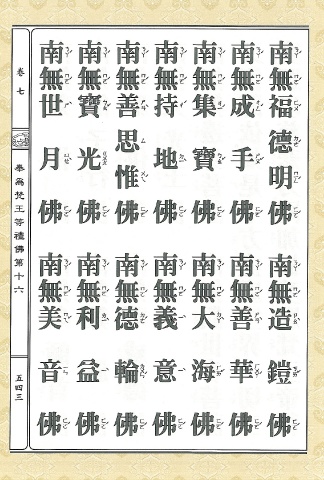 南無福德明佛　南無造鎧佛
南無成手佛　南無善華佛
南無集寶佛　南無大海佛
南無持地佛　南無義意佛
南無善思惟佛　南無德輪佛
南無寶光佛　南無利益佛
南無世月佛　南無美音佛
卷七
奉為梵王等禮佛第十六
五四三